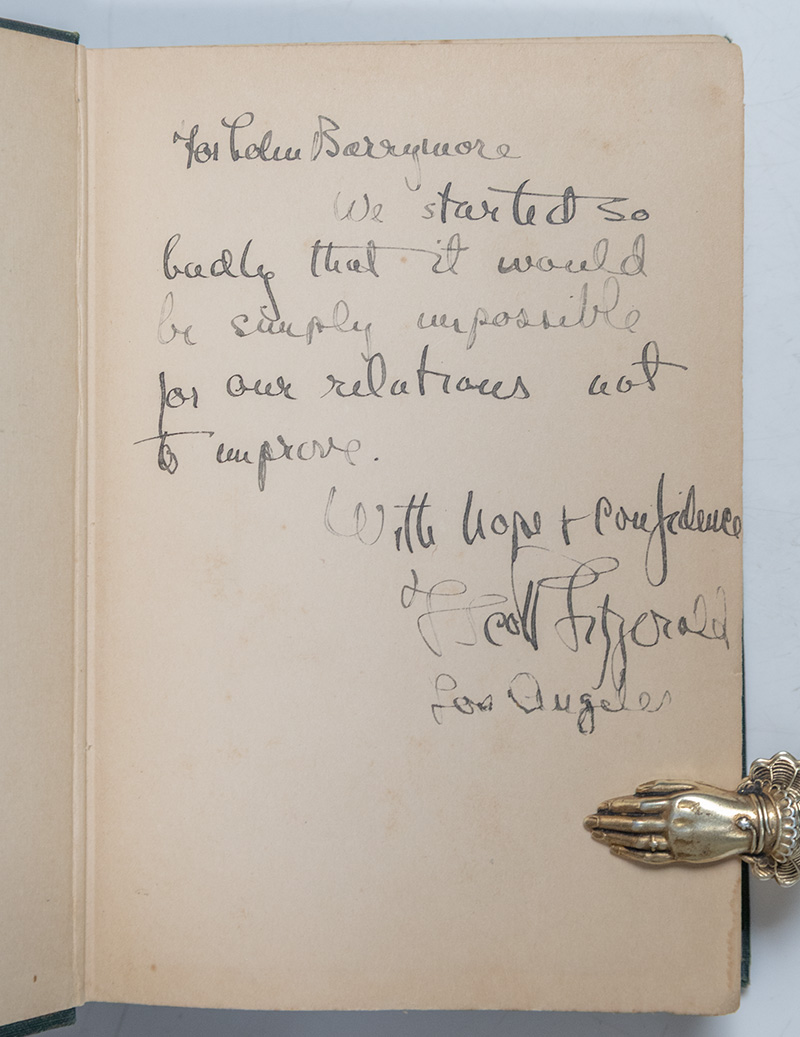 For Barrymore
We started so
badly that it would
be simply impossible
for our relations not
to improve.
With hope + confidence
F Scott Fitzgerald
Los Angeles